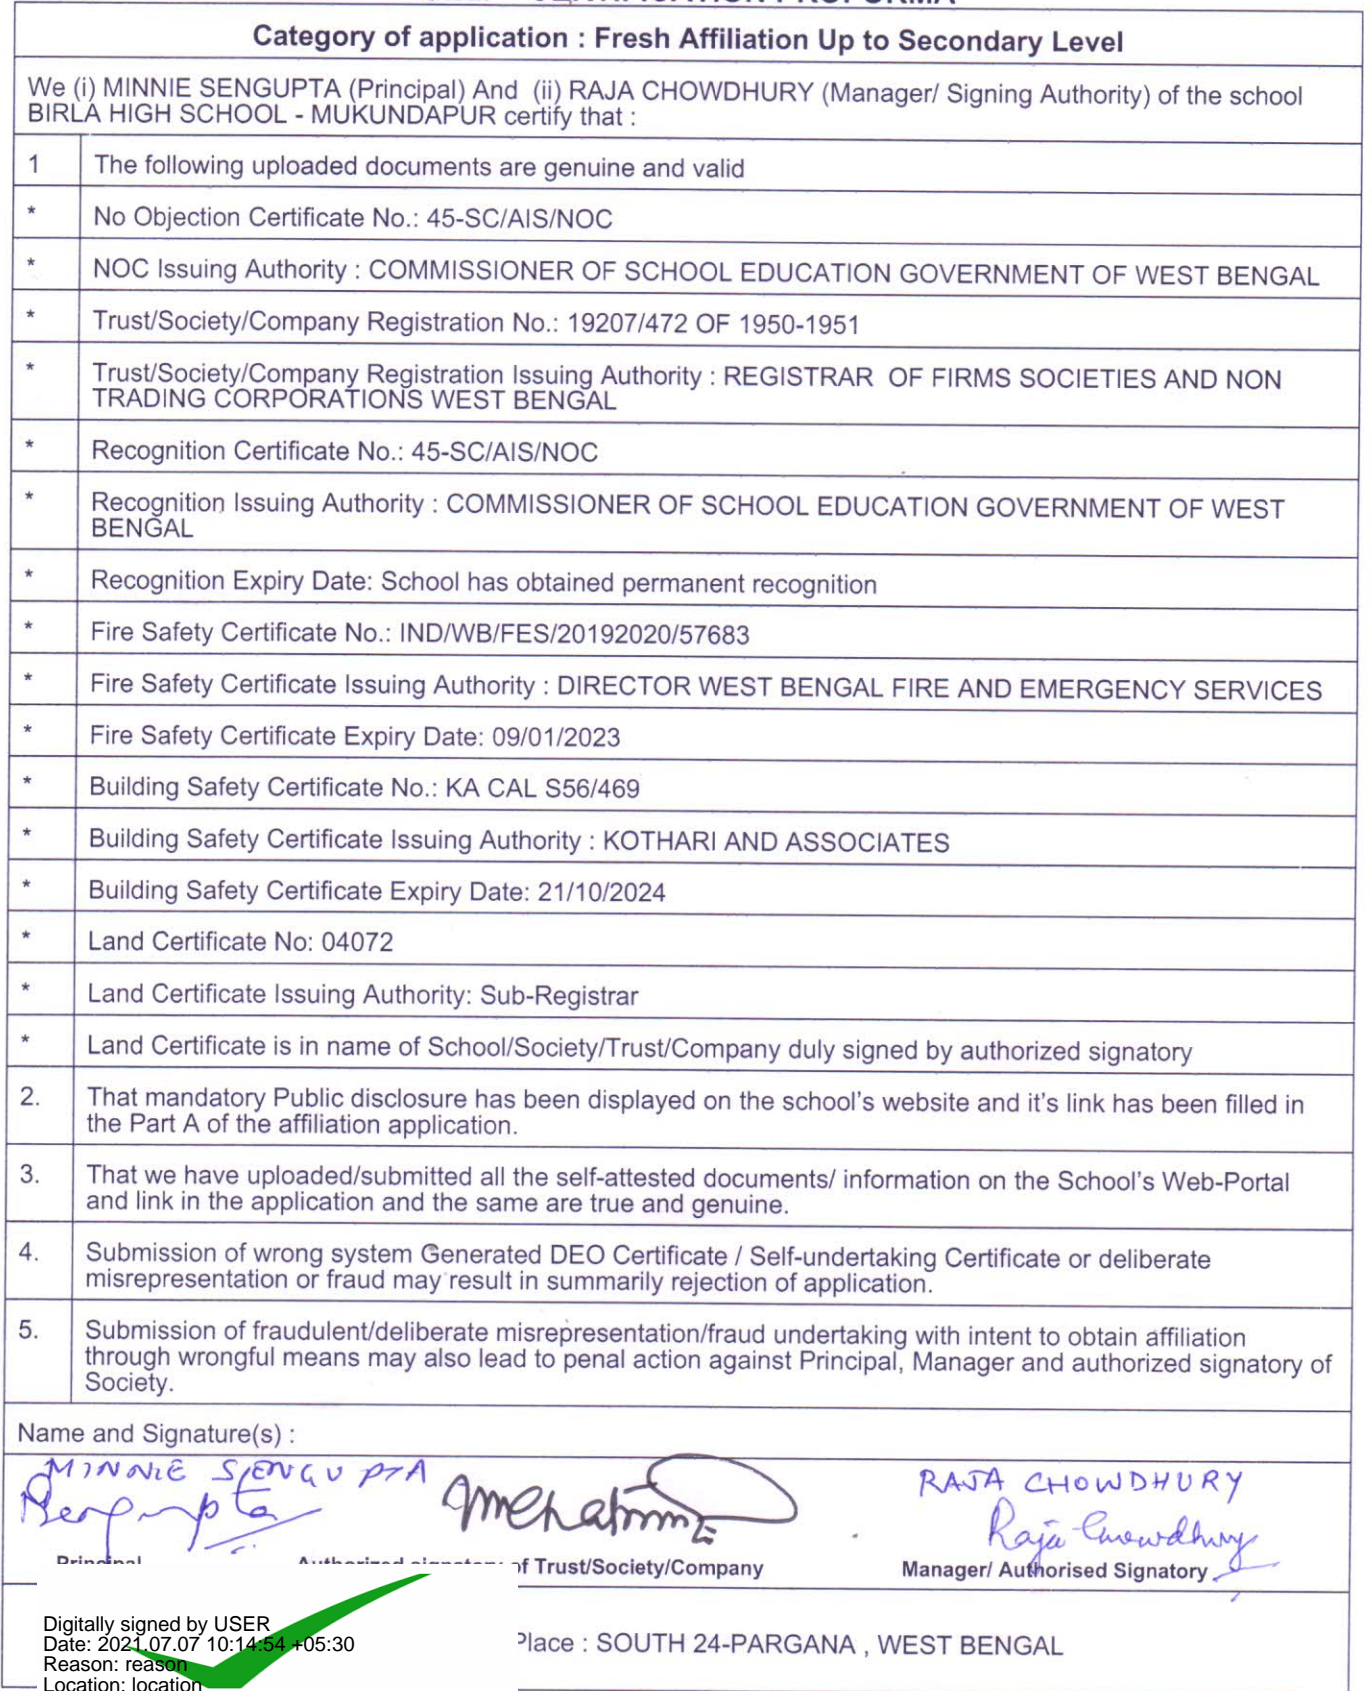 Category of application : Fresh Affiliation Up to Secondary Level
We (i) MINNIE SENGUPTA (Principal) And (ii) RAJA CHOWDHURY (Manager/ Signing Authority) of the school
BIRLA HIGH SCHOOL - MUKUNDAPUR certify that :
1 The following uploaded documents are genuine and valid
* No Objection Certificate No.: 45-SC/AIS/NOC
* NOC Issuing Authority : COMMISSIONER OF SCHOOL EDUCATION GOVERNMENT OF WEST BENGAL
* Trust/Society/Company Registration No.: 19207/472 OF 1950-1951
* Trust/Society/Company Registration Issuing Authority : REGISTRAR OF FIRMS SOCIETIES AND NON
TRADING CORPORATIONS WEST BENGAL
* Recognition Certificate No.: 45-SC/AIS/NOC
* Recognition Issuing Authority : COMMISSIONER OF SCHOOL EDUCATION GOVERNMENT OF WEST
BENGAL
* Recognition Expiry Date: School has obtained permanent recognition
* Fire Safety Certificate No.: IND/WB/FES/20192020/57683
* Fire Safety Certificate Issuing Authority : DIRECTOR WEST BENGAL FIRE AND EMERGENCY SERVICES
* Fire Safety Certificate Expiry Date: 09/01/2023
* Building Safety Certificate No.: KA CAL S56/469
* Building Safety Certificate Issuing Authority : KOTHARI AND ASSOCIATES
* Building Safety Certificate Expiry Date: 21/10/2024
* Land Certificate No: 04072
* Land Certificate Issuing Authority: Sub-Registrar
* Land Certificate is in name of School/Society/Trust/Company duly signed by authorized signatory
2. That mandatory Public disclosure has been displayed on the school's website and it's link has been filled in
the Part A of the affiliation application.
3. That we have uploaded/submitted all the self-attested documents/ information on the School's Web-Portal
and link in the application and the same are true and genuine.
4. Submission of wrong system Generated DEO Certificate / Self-undertaking Certificate or deliberate
misrepresentation or fraud may result in summarily rejection of application.
5. Submission of fraudulent/deliberate misrepresentation/fraud undertaking with intent to obtain affiliation
through wrongful means may also lead to penal action against Principal, Manager and authorized signatory of
Society.
Name and Signature(s) :
MINNIE SENGUPTA RAJA CHOWDHURY
Sengupta Raja Chowdhury
Principal Authorized signatory of Trust/Society/Company Manager/ Authorised Signatory
Digitally signed by USER
Date: 2021.07.07 10:14:54 +05:30
Reason: reason
Location: location
Place : SOUTH 24-PARGANA , WEST BENGAL